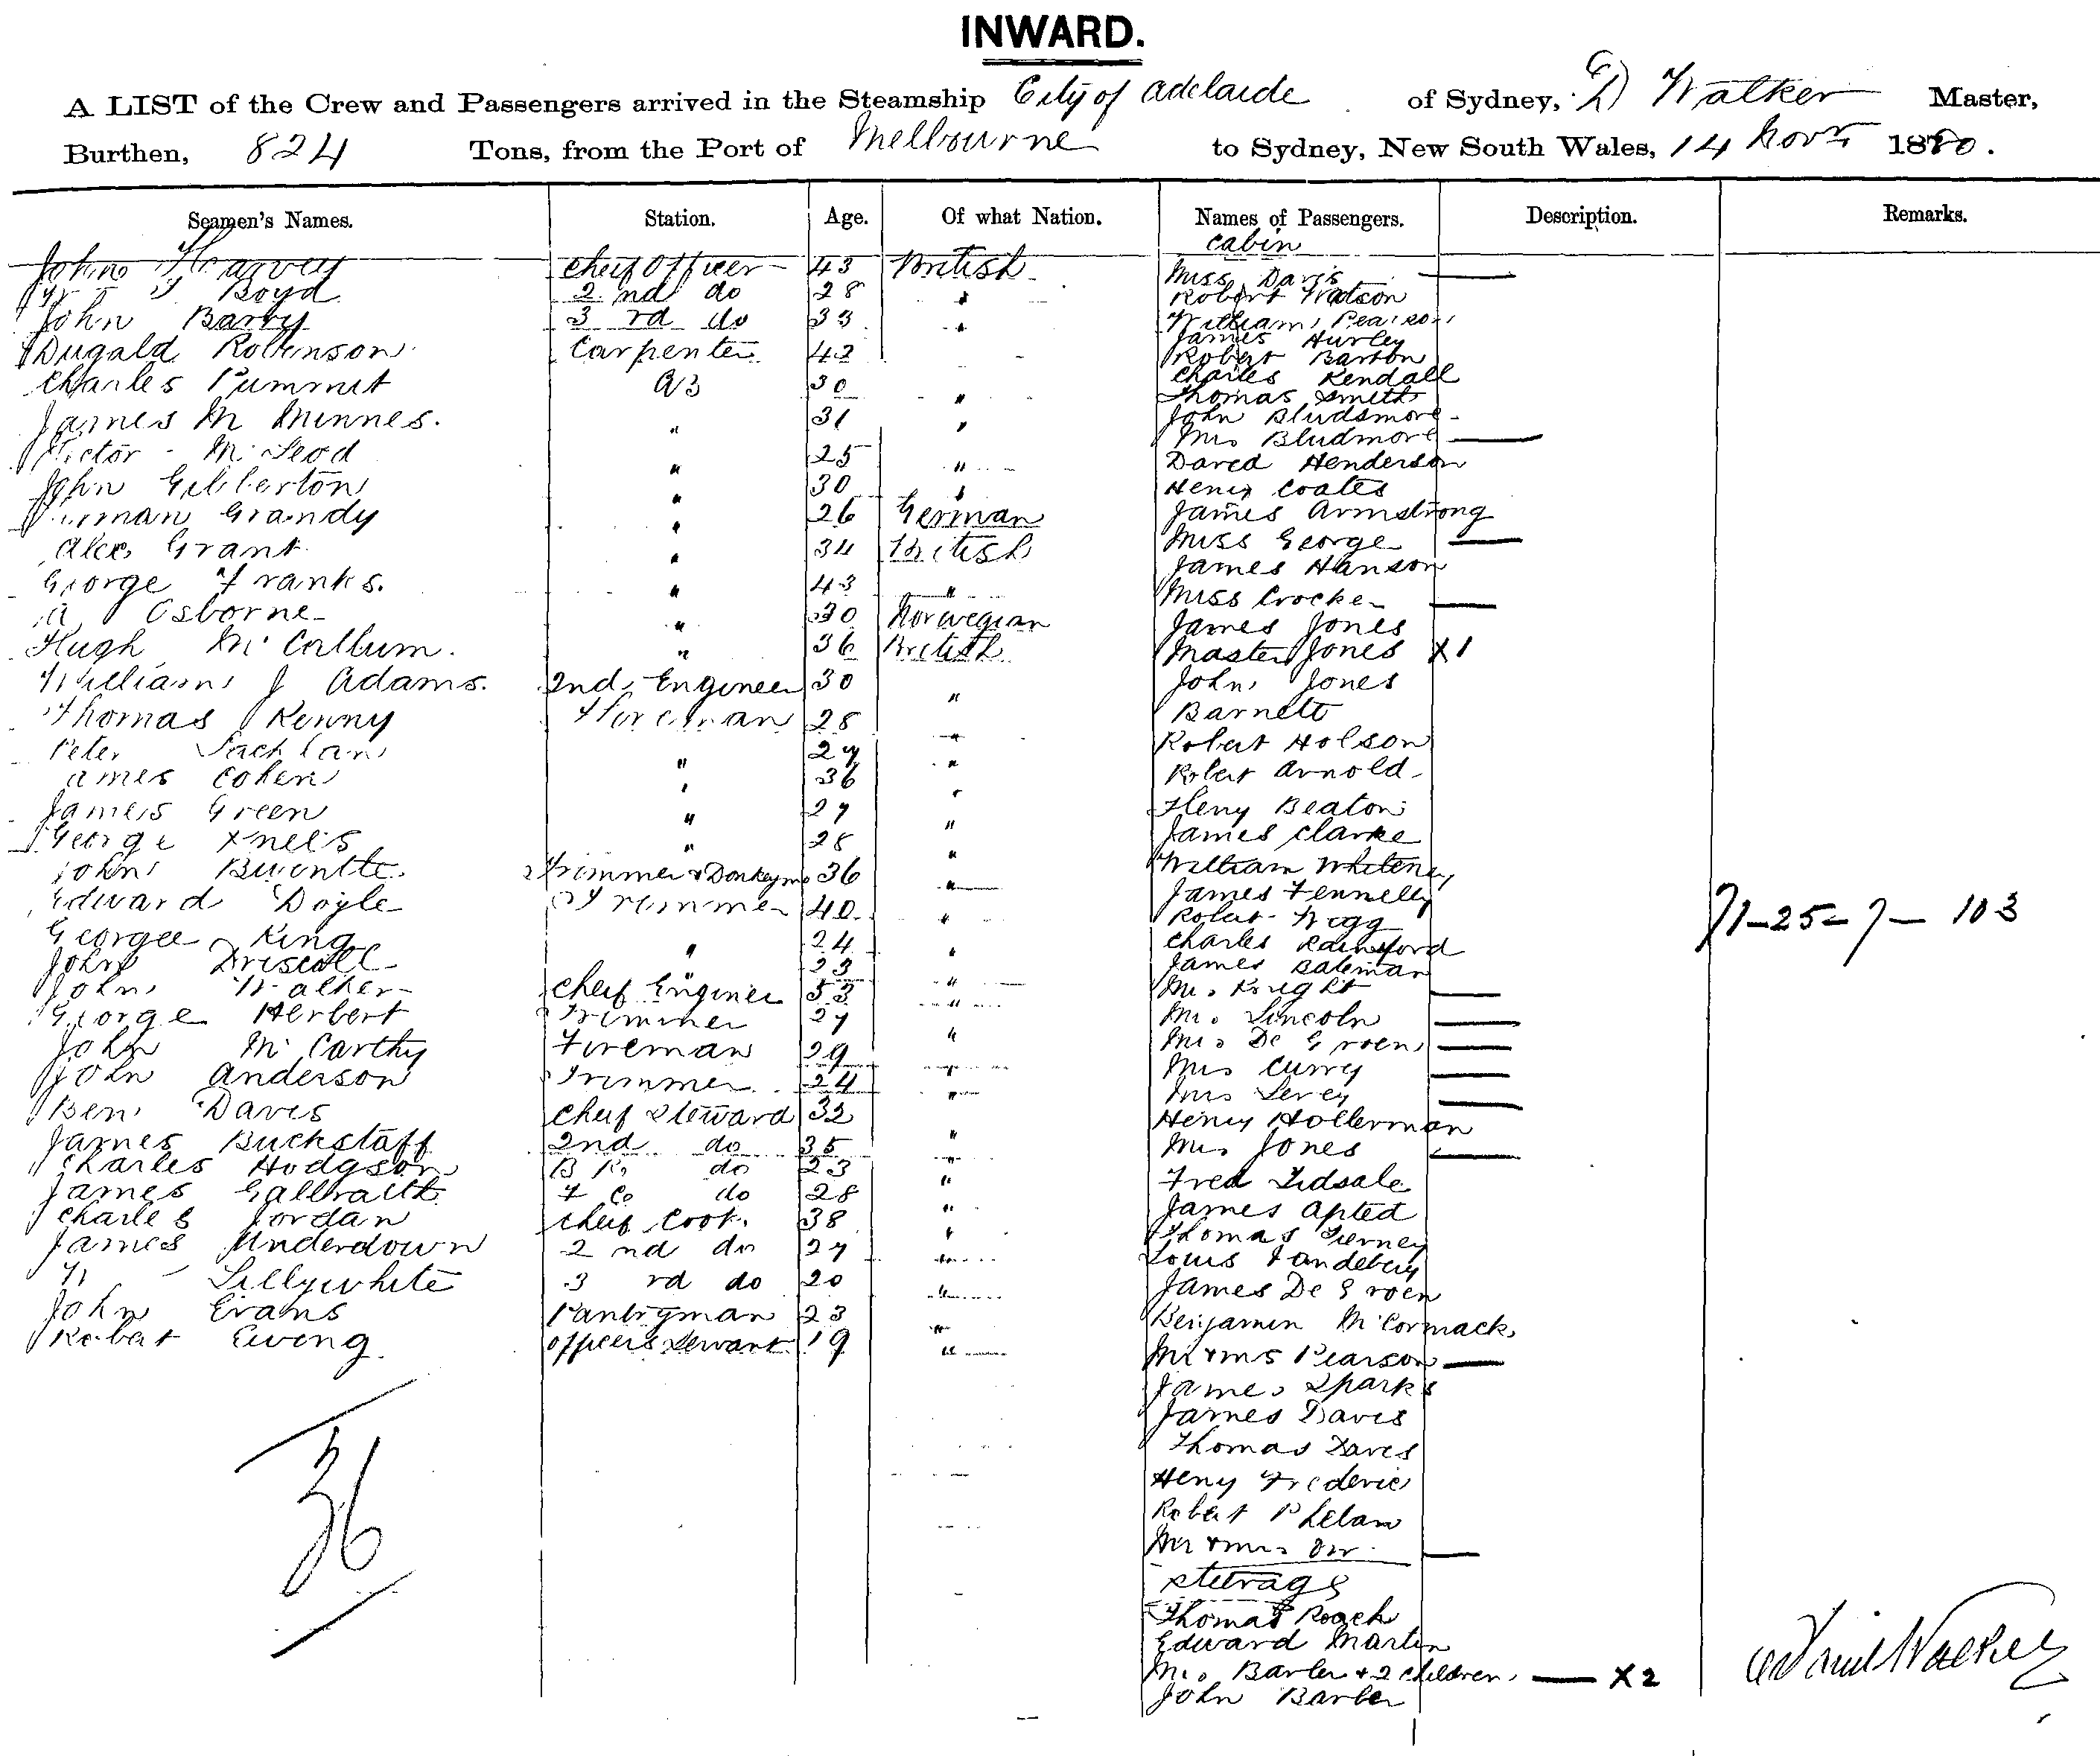 INWARD.
A LIST of the Crew and Passengers arrived in the Steamship City of Adelaide of Sydney, D Walker Master,
Burthen, 824 Tons, from the Port of Melbourne to Sydney, New South Wales, 14 Novr 1880.
Seamen's Names. Station. Age. Of what Nation. Names of Passengers. Description. Remarks.
John Harvey Cheif Officer 43 British
Boyd 2nd do 28 "
John Barry 3rd do 33 "
Dugald Robinson Carpenter 42
Charles AB 30 "
James Mc Minnes. " 31 "
Victor McLeod " 25 "
John Gilberton " 30 "
Grandy " 26 German
Alex Grant " 34 British
George Franks. " 43 "
A Osborne " 30 Norwegian
Hugh McCallum. " 36 British
William J Adams. 2nd Engineer 30 "
Thomas Kenny Fireman 28 "
Peter Lachlan " 27 "
James Cohen " 36 "
James Green " 27 "
George " 28 "
John Trimmer & Donkeyman 36 "
Edward Doyle Trimmer 40 "
George King " 24 "
John Driscoll " 23 "
John Walker Cheif Engineer 53 "
George Herbert Trimmer 27 "
John McCarthy Fireman 29 "
John Anderson Trimmer 24 "
Ben Davis Cheif Steward 32 "
James Buckstaff 2nd do 35 "
Charles Hodgson B K do 23 "
James Galbraith F C do 28 "
Charles Jordan Cheif Cook. 38 "
James Underdown 2nd do 27 "
Lillywhite 3rd do 20 "
John Evans Pantryman 23 "
Robert Ewing Officers Servant 19 "
36
Cabin
Miss Davis
Robert Watson
William Pearson
James Hurley
Robert Barton
Charles Kendall
Thomas Smith
John Bludsmore
Mrs Bludmore
David Henderson
Henry Coates
James Armstrong
Miss George
James Hanson
Miss Crocker
James Jones
Master Jones X1
John Jones
Barnett
Robert Holson
Robert Arnold
Henry Beaton
James Clarke
William Whiteney
James Fennelly
Robert Wigg
Charles Rainsford
James Bateman
Mrs Knight
Mrs Lincoln
Mrs De Groen
Mrs Curry
Mrs Levey
Henry Hollerman
Mrs Jones
Fred Tidsale
James Apted
Thomas Tierney
Louis Vandeberg
James De Groen
Benjamin McCormack
Mr & Mrs Pearson
James Sparks
James Davis
Thomas Davis
Henry Frederic
Robert Phelan
Mr & Mrs Orr
Steerage
Thomas Roach
Edward Martin
Mrs Barber & 2 children X2
John Barber
71-25-7-103
Walker